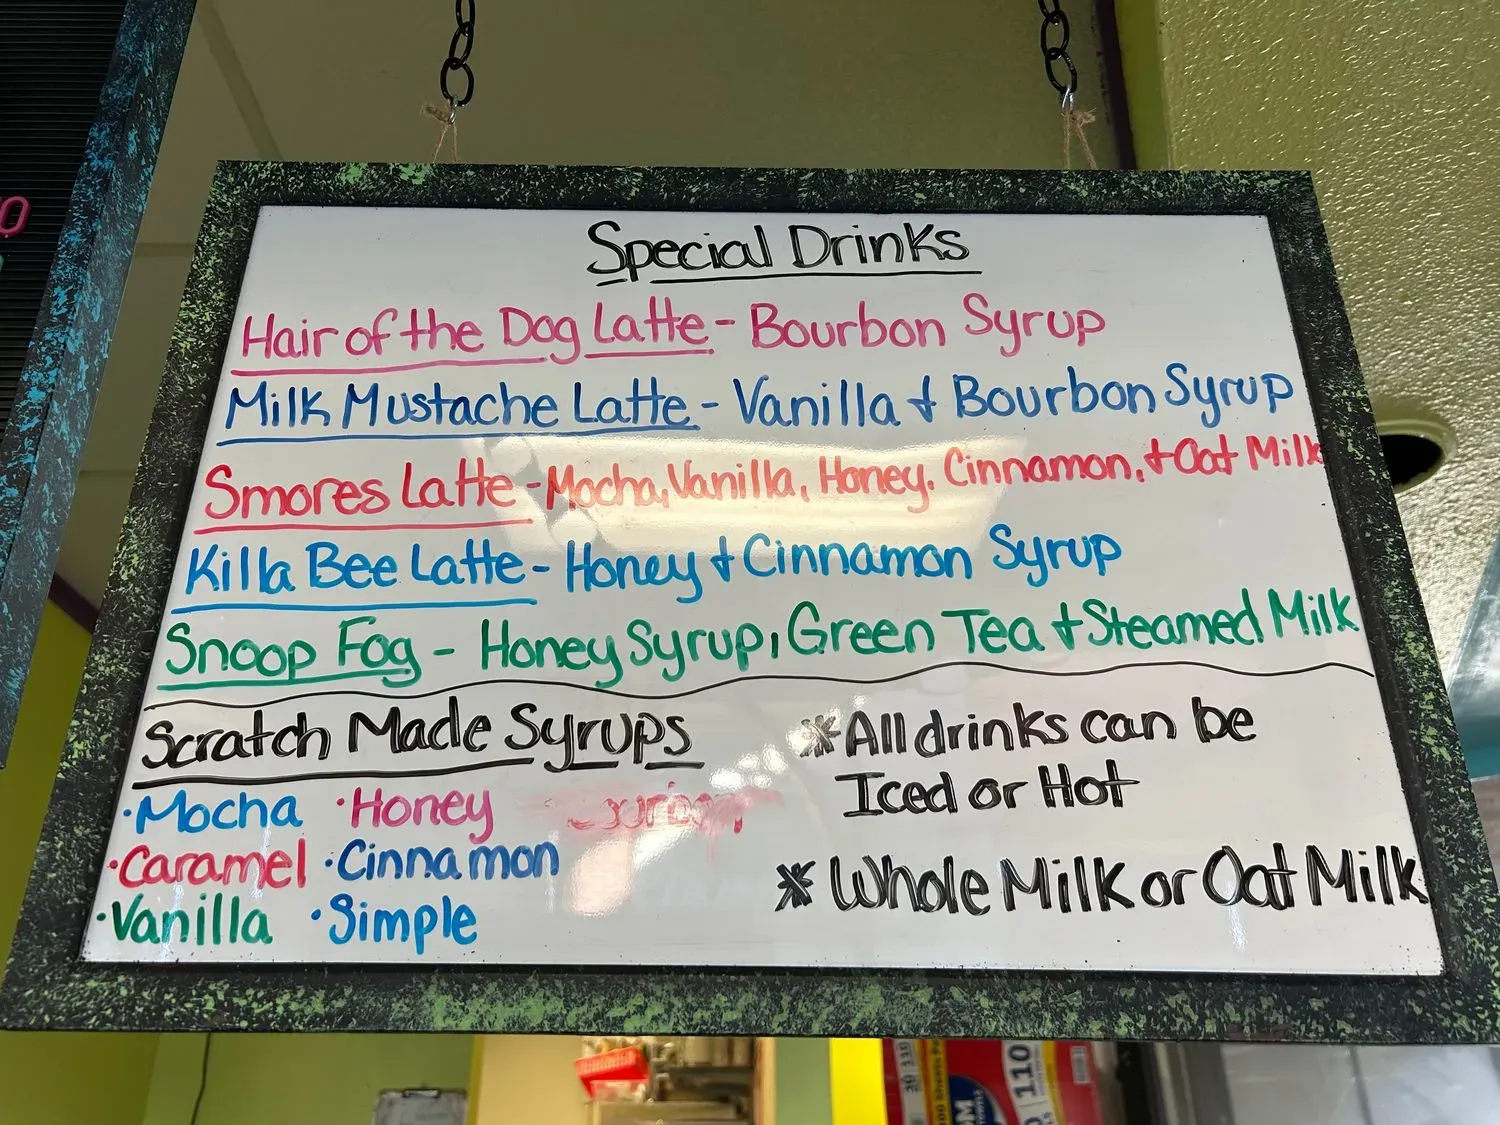 Special Drinks
Hair of the Dog Latte - Bourbon Syrup
Milk Mustache Latte - Vanilla + Bourbon Syrup
Smores Latte - Mocha, Vanilla, Honey. Cinnamon, + Oat Milk
Killa Bee Latte - Honey + Cinnamon Syrup
Snoop Fog - Honey Syrup, Green Tea + Steamed Milk
Scratch Made Syrups
·Mocha ·Honey
·Caramel ·Cinnamon
·Vanilla ·Simple
※ All drinks can be
Iced or Hot
※ Whole Milk or Oat Milk
110
110